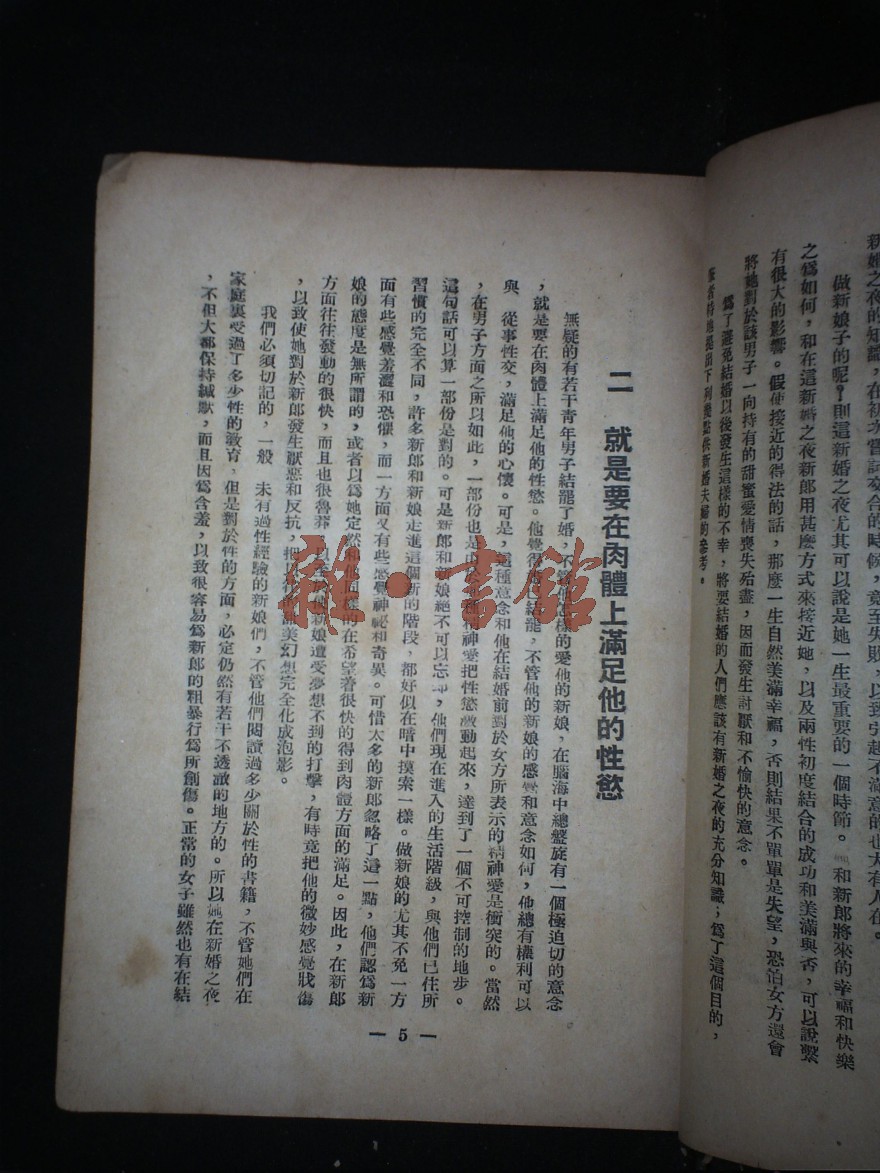 新婚之夜的知識，在初次嘗試交合的時候，竟至失敗，以致引起不滿意的也大有人在。
做新娘子的呢？則這新婚之夜尤其可以說是她一生最重要的一個時節。和新郎將來的幸福和快樂
之爲如何，和在這新婚之夜新郎用甚麽方式來接近她，以及兩性初度結合的成功和美滿與否，可以說繫
有很大的影響。假使接近的得法的話，那麽一生自然美滿幸福，否則結果不單單是失望，恐怕女方還會
將她對於該男子一向持有的甜蜜愛情喪失殆盡，因而發生討厭和不愉快的意念。
爲了避免結婚以後發生這樣的不幸，將要結婚的人們應該有新婚之夜的充分知識；爲了這個目的，
特地提出下列幾點供新婚夫婦的參考。
二　就是要在肉體上滿足他的性慾
無疑的有若干靑年男子結罷了婚，不管他怎樣的愛他的新娘，在腦海中總盤旋有一個極迫切的意念
，就是要在肉體上滿足他的性慾。他覺得結罷，不管他的新娘的感覺和意念如何，他總有權利可以
與　從事性交，滿足他的心懷。可是，這種意念和他在結婚前對於女方所表示的精神愛是衝突的。當然
，在男子方面之所以如此，一部份也是由於精神愛把性慾激動起來，達到了一個不可控制的地步。
這句話可以算一部份是對的。可是新郎和新娘絕不可以忘却，他們現在進入的生活階級，與他們已往所
習慣的完全不同，許多新郎和新娘走進這個新的階段，都好似在暗中摸索一樣。做新娘的尤其不免一方
面有些感覺羞澀和恐懼，而一方面又有些感覺神祕和奇異。可惜太多的新郎忽略了這一點，他們認爲新
娘的態度是無所謂的，或者以爲她定然和他同樣的在希望著很快的得到肉體方面的滿足。因此，在新郎
方面往往發動的很快，而且也很魯莽，以至於使新娘遭受夢想不到的打擊，有時竟把他的微妙感覺戕傷
，以致使她對於新郎發生厭惡和反抗，把以往的甜美幻想完全化成泡影。
我們必須切記的，一般　未有過性經驗的新娘們，不管他們閱讀過多少關於性的書籍，不管她們在
家庭裏受過了多少性的敎育，但是對於性的方面，必定仍然有若干不透澈的地方的。所以她在新婚之夜
，不但大都保持緘默，而且因爲含羞，以致很容易爲新郎的粗暴行爲所創傷。正常的女子雖然也有在結
— 5 —
雜·書館